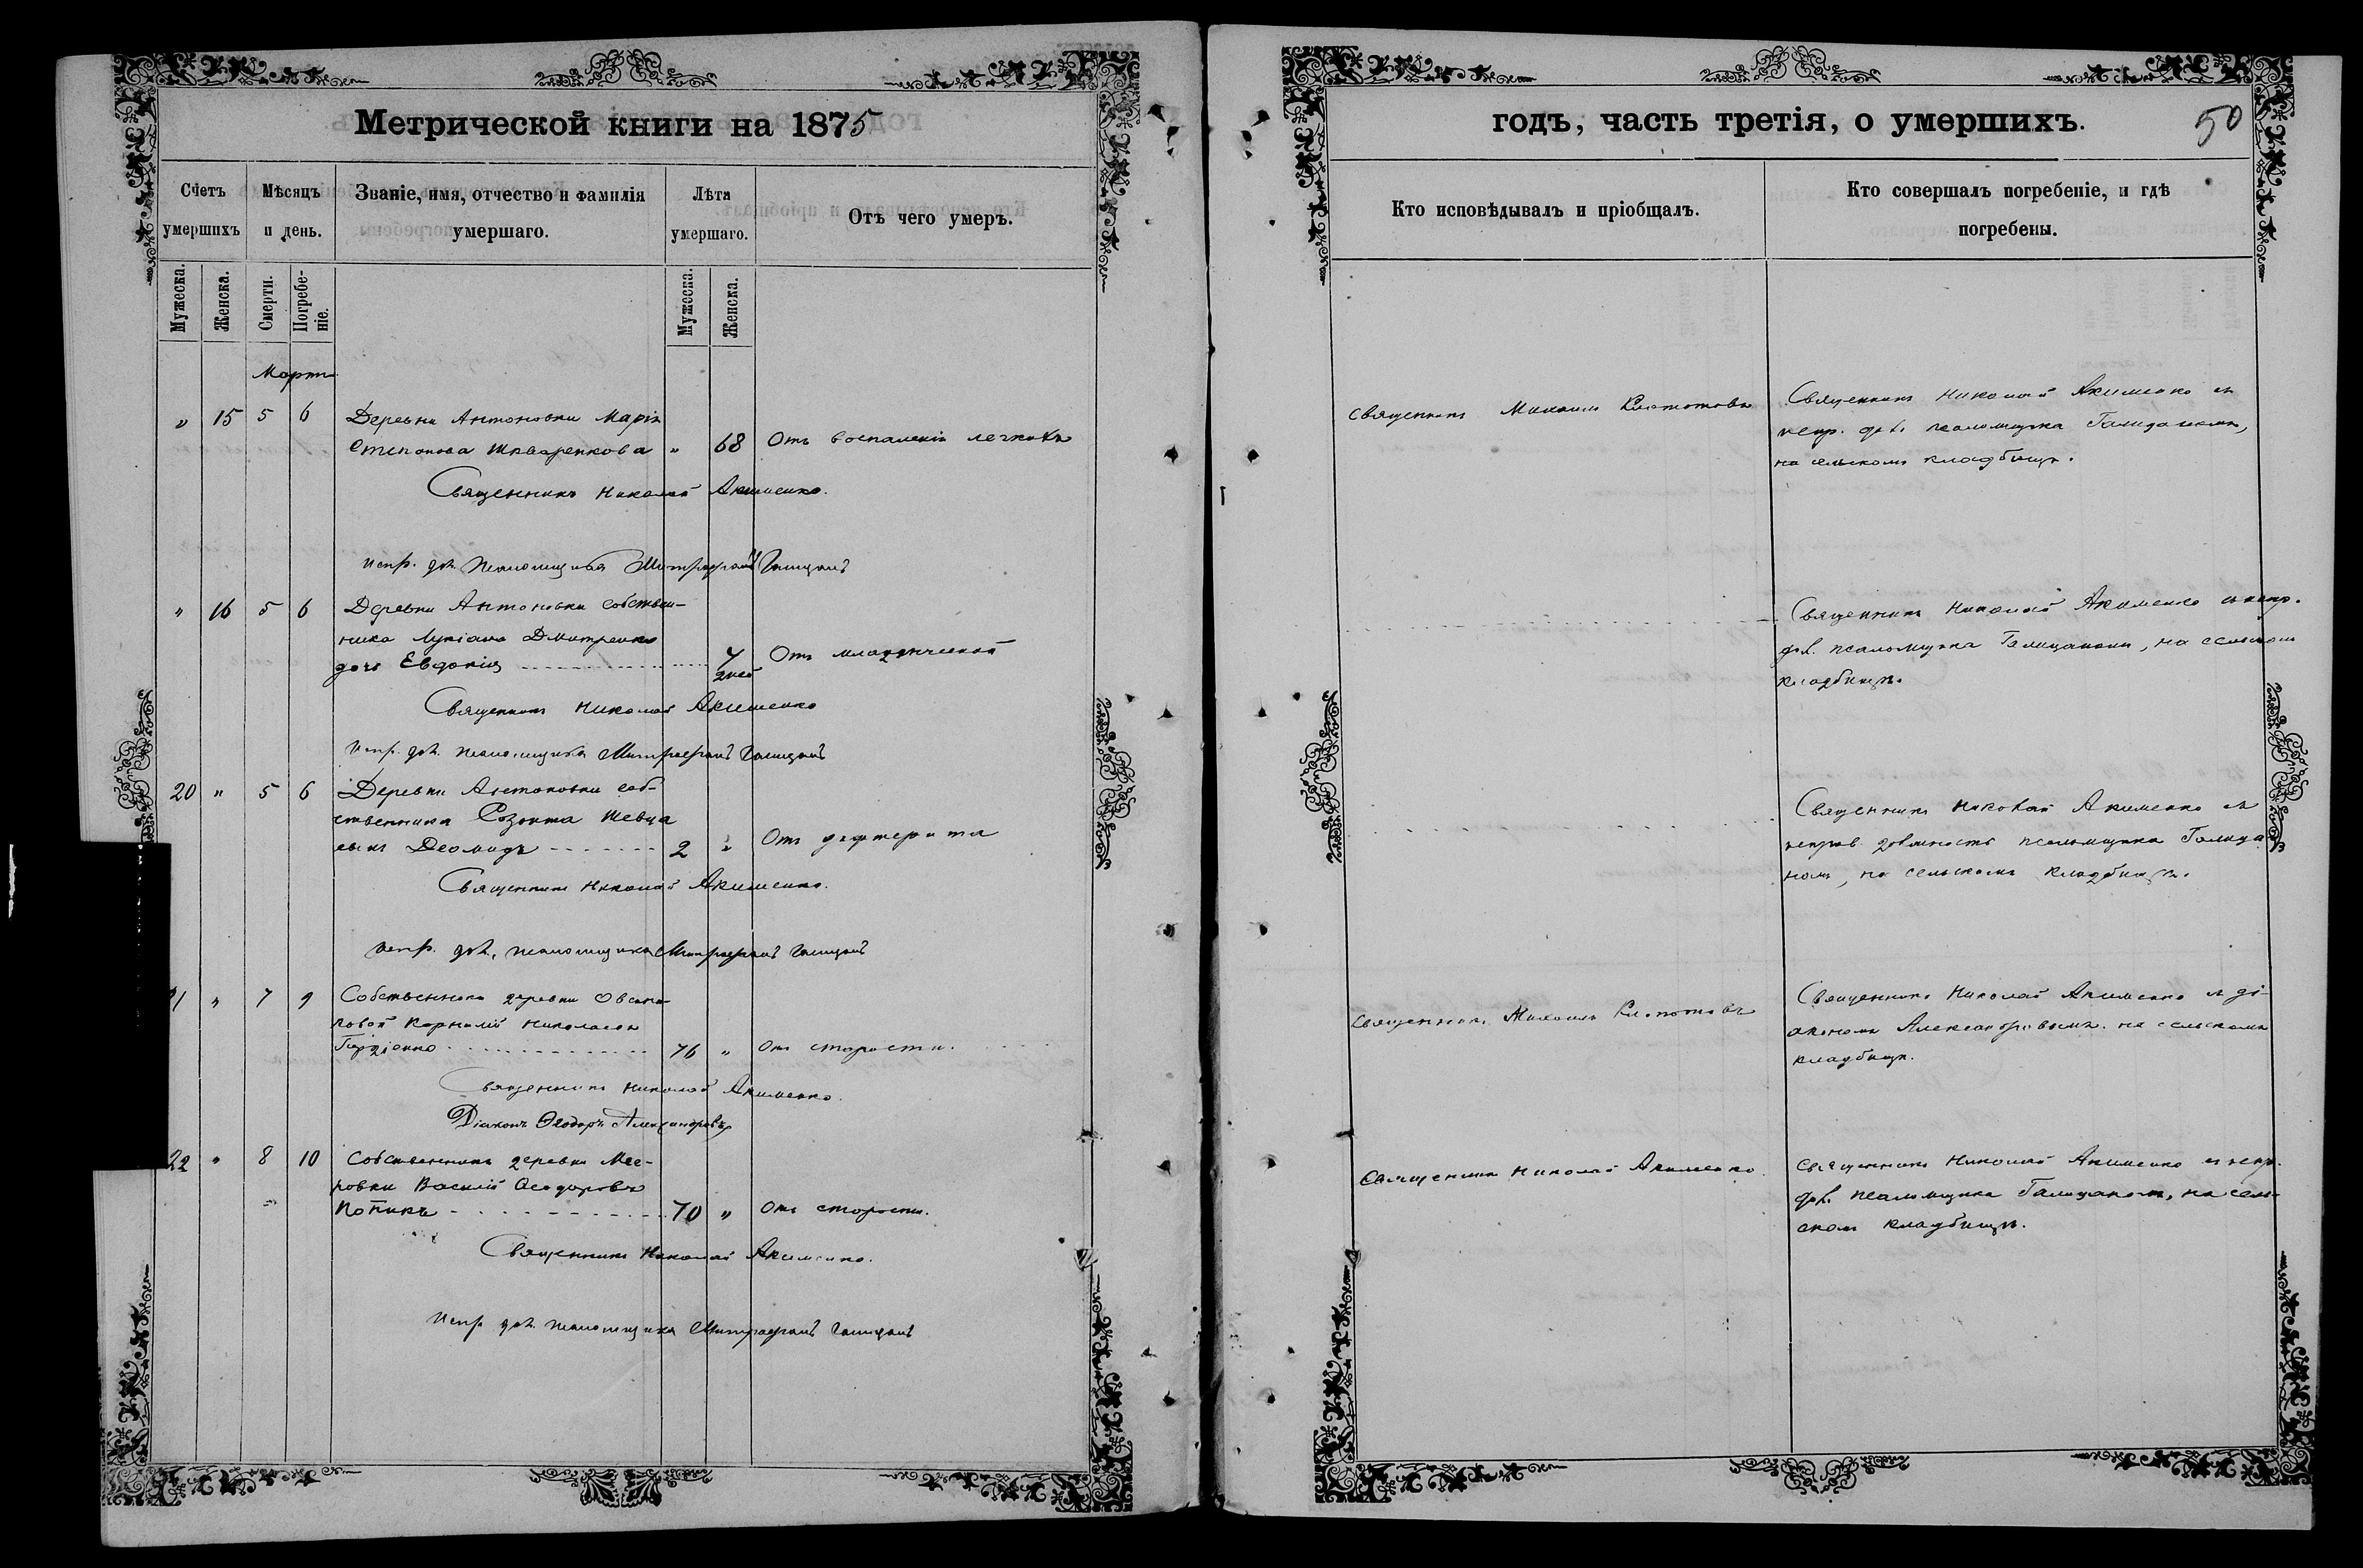 Метрической книги на 1875
Счетъ умершихъ
Мѣсяцъ и день.
Званіе, имя, отчество и фамилія умершаго.
Лѣта умершаго.
Отъ чего умеръ.
Мужеска.
Женска.
Смерти.
Погребеніе.
Мужеска.
Женска.
Мартъ
" 15 5 6 Деревни Антоновки Марія
Степанова Шкваренкова " 68 Отъ воспаленія легкихъ
Священникъ Николай Акименко.
Испр. дол. псаломщика Митрофанъ Галицанъ
" 16 5 6 Деревни Антоновки собствен-
ника Лукіана Дмитренко
дочь Евдокія 7 дней Отъ младенческой
Священникъ Николай Акименко
Испр. дол. псаломщика Митрофанъ Галицанъ
20 " 5 6 Деревни Антоновки соб-
ственника Созонта Шевца
сынъ Деомидъ 2 " Отъ дифтерита
Священникъ Николай Акименко.
Испр. дол. псаломщика Митрофанъ Галицанъ
21 " 7 9 Собственникъ деревни
Корнилій Николаевъ
Гордіенко 76 " Отъ старости.
Священникъ Николай Акименко.
Діаконъ Ѳеодоръ Александровъ
22 " 8 10 Собственникъ деревни
Василій Ѳеодоровъ
Попикъ 70 " Отъ старости.
Священникъ Николай Акименко.
Испр. дол. псаломщика Митрофанъ Галицанъ
годъ, часть третія, о умершихъ.
50
Кто исповѣдывалъ и пріобщалъ.
Кто совершалъ погребеніе, и гдѣ погребены.
Священникъ Михаилъ Клопотовъ
Священникъ Николай Акименко съ
испр. дол. псаломщика Галицаномъ,
на сельскомъ кладбищѣ.
Священникъ Николай Акименко съ испр.
дол. псаломщика Галицаномъ, на сельскомъ
кладбищѣ.
Священникъ Николай Акименко съ
исправ. должность псаломщика Галица
номъ, на сельскомъ кладбищѣ.
Священникъ Михаилъ Клопотовъ
Священникъ Николай Акименко съ ді-
акономъ Александровымъ на сельскомъ
кладбищѣ.
Священникъ Николай Акименко.
Священникъ Николай Акименко съ испр.
дол. псаломщика Галицаномъ, на сель-
скомъ кладбищѣ.